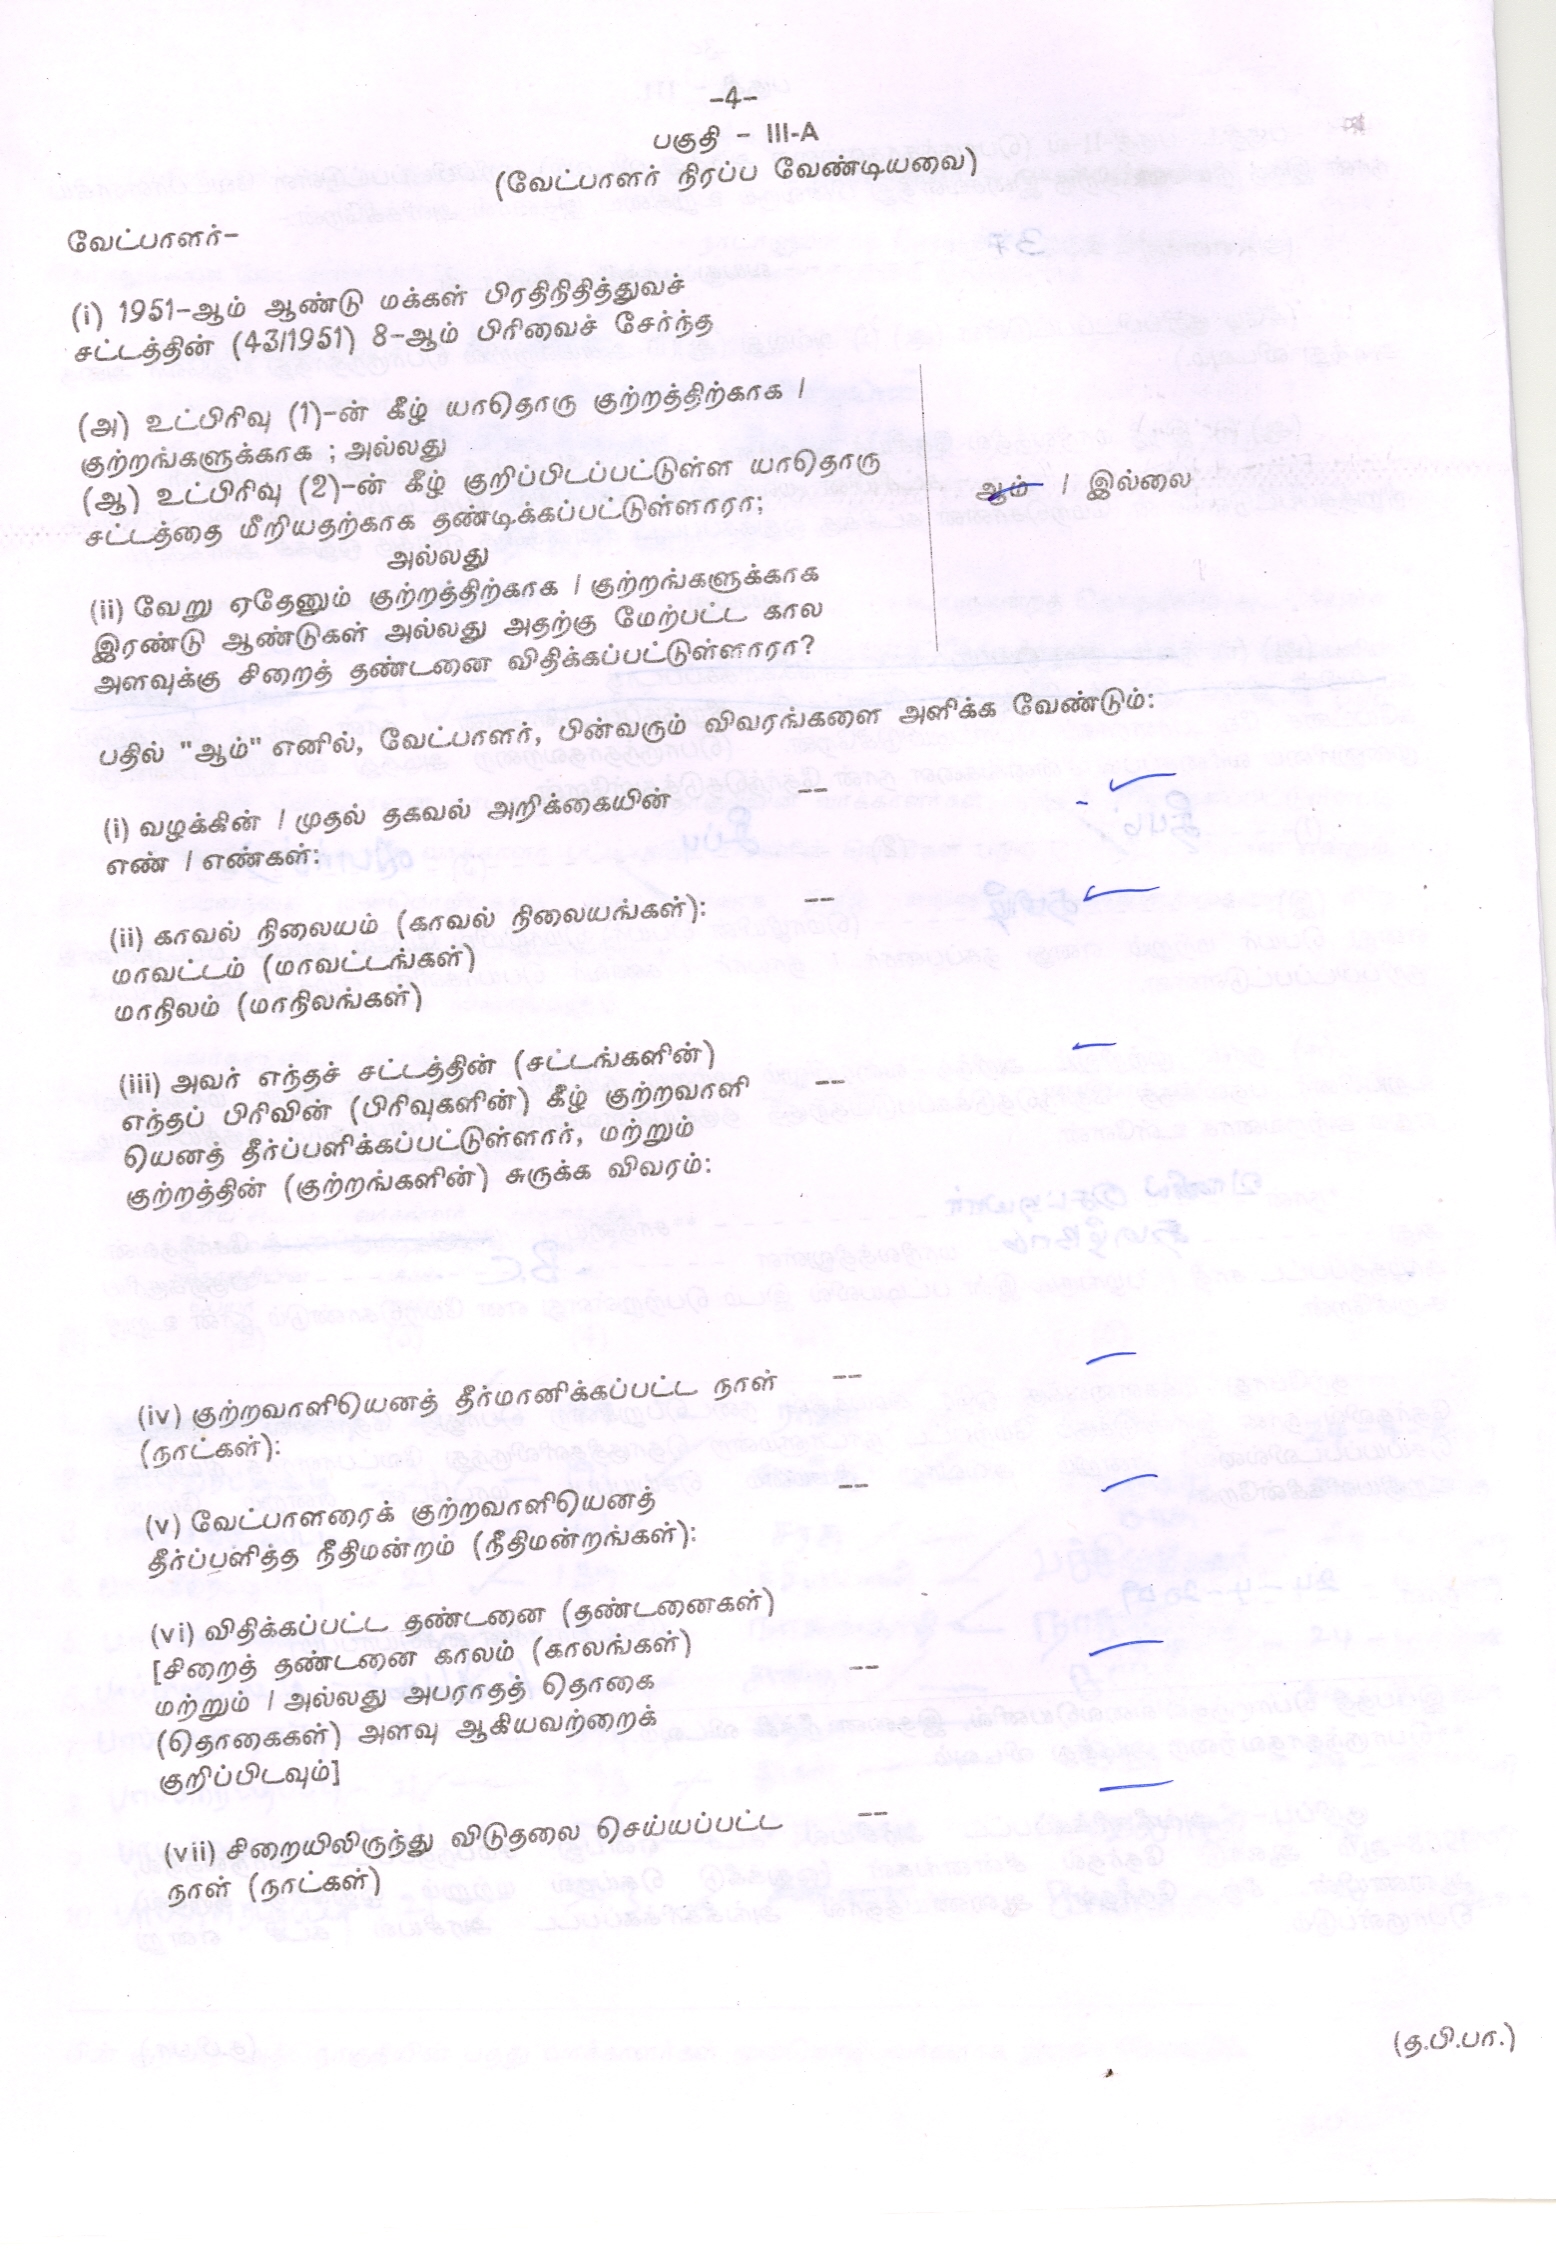 -4-
பகுதி - III-A
(வேட்பாளர் நிரப்ப வேண்டியவை)
வேட்பாளர்-
(i) 1951-ஆம் ஆண்டு மக்கள் பிரதிநிதித்துவச்
சட்டத்தின் (43/1951) 8-ஆம் பிரிவைச் சேர்ந்த
(அ) உட்பிரிவு (1)-ன் கீழ் யாதொரு குற்றத்திற்காக /
குற்றங்களுக்காக ; அல்லது
(ஆ) உட்பிரிவு (2)-ன் கீழ் குறிப்பிடப்பட்டுள்ள யாதொரு
சட்டத்தை மீறியதற்காக தண்டிக்கப்பட்டுள்ளாரா;
ஆம் / இல்லை
அல்லது
(ii) வேறு ஏதேனும் குற்றத்திற்காக / குற்றங்களுக்காக
இரண்டு ஆண்டுகள் அல்லது அதற்கு மேற்பட்ட கால
அளவுக்கு சிறைத் தண்டனை விதிக்கப்பட்டுள்ளாரா?
பதில் "ஆம்" எனில், வேட்பாளர், பின்வரும் விவரங்களை அளிக்க வேண்டும்:
(i) வழக்கின் / முதல் தகவல் அறிக்கையின் --
எண் / எண்கள்:
(ii) காவல் நிலையம் (காவல் நிலையங்கள்): --
மாவட்டம் (மாவட்டங்கள்)
மாநிலம் (மாநிலங்கள்)
(iii) அவர் எந்தச் சட்டத்தின் (சட்டங்களின்)
எந்தப் பிரிவின் (பிரிவுகளின்) கீழ் குற்றவாளி --
யெனத் தீர்ப்பளிக்கப்பட்டுள்ளார், மற்றும்
குற்றத்தின் (குற்றங்களின்) சுருக்க விவரம்:
(iv) குற்றவாளியெனத் தீர்மானிக்கப்பட்ட நாள் --
(நாட்கள்):
(v) வேட்பாளரைக் குற்றவாளியெனத் --
தீர்ப்பளித்த நீதிமன்றம் (நீதிமன்றங்கள்):
(vi) விதிக்கப்பட்ட தண்டனை (தண்டனைகள்)
[சிறைத் தண்டனை காலம் (காலங்கள்) --
மற்றும் / அல்லது அபராதத் தொகை
(தொகைகள்) அளவு ஆகியவற்றைக்
குறிப்பிடவும்]
(vii) சிறையிலிருந்து விடுதலை செய்யப்பட்ட --
நாள் (நாட்கள்)
(த.பி.பா.)